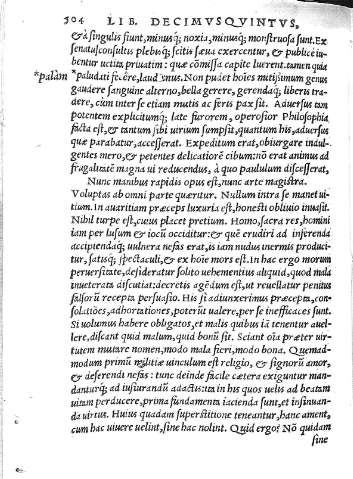 504 LIB. DECIMVSQVINTVS,
& à singulis fiunt, minusq; noxia, minusq; monstruosa sunt. Ex
senatusconsultis plebisq; scitis sæua exercentur, & publicè iu-
bentur uetita priuatim: quæ cōmissa capite luerent. tamen quia
*palàm *paludati fecêre, laudamus. Non pudet hoīes mitissimum genus
gaudere sanguine alterno, bella gerere, gerendaq; liberis tra-
dere, cum inter se etiam mutis ac feris pax sit. Aduersus tam
potentem explicitumq; late furorem, operosior Philosophia
facta est, & tantum sibi uirium sumpsit, quantum his, aduersus
quæ parabatur, accesserat. Expeditum erat, obiurgare indul-
gentes mero, & petentes delicatiorē cibum: nō erat animus ad
frugalitatē magna ui reducendus, à quo paululum discesserat,
Nunc manibus rapidis opus est, nunc arte magistra.
Voluptas ab omni parte quæritur. Nullum intra se manet ui-
tium. In auaritiam præceps luxuria est, honesti obliuio inuasit.
Nihil turpe est, cuius placet pretium. Homo, sacra res, homini
iam per lusum & iocū occiditur: & quē erudiri ad inferenda
accipiendaq; uulnera nefas erat, is iam nudus inermis produci
tur, satisq; spectaculi, & ex hoīe mors est. in hac ergo morum
peruersitate, desideratur solito uehementius aliquid, quod mala
inueterata discutiat: decretis agēdum est, ut reuellatur penitus
falsorū recepta persuasio. His si adiunxerimus præcepta, con-
solatiões, adhortationes, poterūt ualere, per se inefficaces sunt.
Si uolumus habere obligatos, et malis quibus iā tenentur auel-
lere, discant quid malum, quid bonū sit. Sciant oīa præter uir-
tutem mutare nomen, modo mala fieri, modo bona. Quemad-
modum primū militiæ uinculum est religio, & signorū amor,
& deserendi nefas: tunc deinde facile cætera exiguntur man-
danturq; ad iusiurandū adactis: ita in his quos uelis ad beatam
uitam perducere, prima fundamenta iacienda sunt, et insinuan-
da uirtus. Huius quadam superstitione teneantur, hanc ament,
cum hac uiuere uelint, sine hac nolint. Quid ergo? Nō quidam
sine